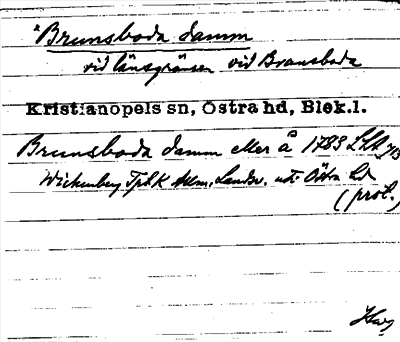 *Brunsboda damm
vid länsgränsen vid Brunsboda
Kristianopels sn, Östra hd, Blek.l.
Brunsboda damm eller å 1783 LSA
Wickenberg Tpl K Alm. Landsv. uti Östra hd
(prot.)